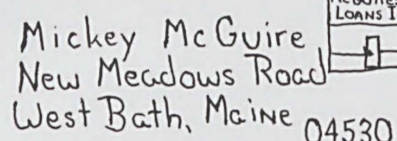 LOANS
Mickey McGuire
New Meadows Road
West Bath, Maine
04530